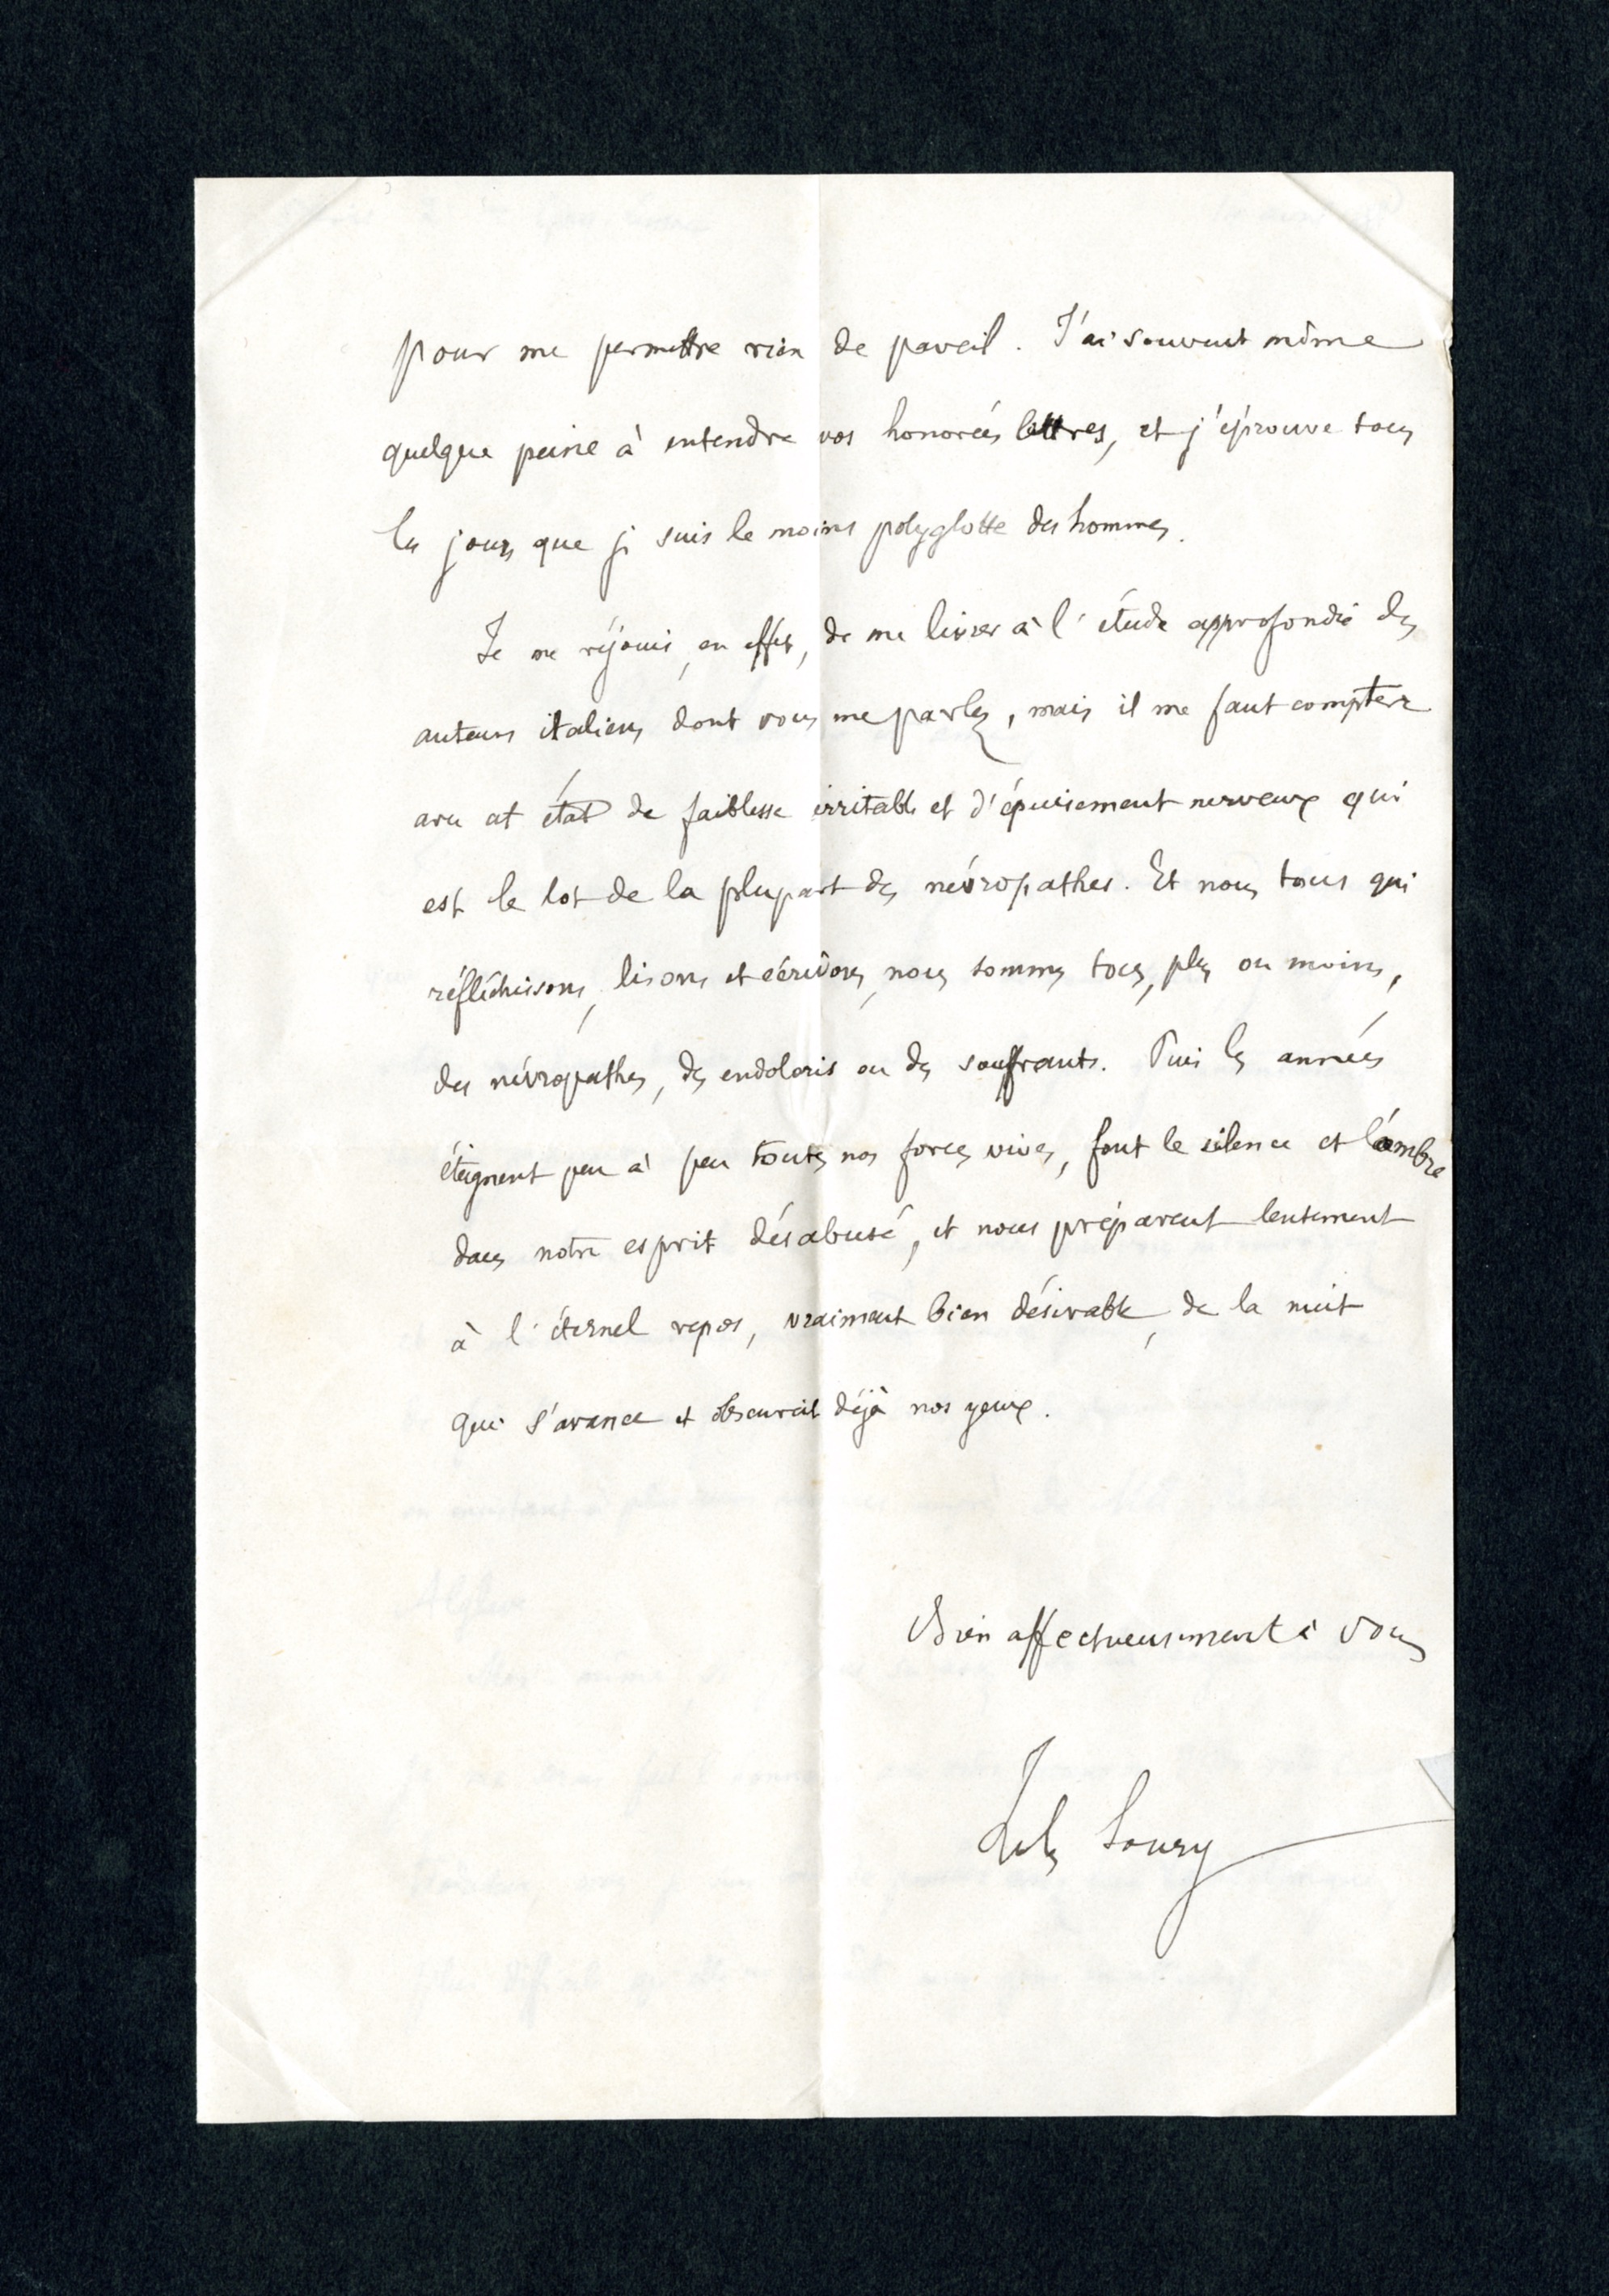 pour me permettre rien de pareil. J'ai souvent même
quelque peine à entendre vos honorées lettres, et j'éprouve tous
les jours que je suis le moins polyglotte des hommes.
Je me réjouis, en effet, de me livrer à l'étude approfondie des
auteurs italiens dont vous me parlez, mais il me faut compter
avec cet état de faiblesse irritable et d'épuisement nerveux qui
est le lot de la plupart des névropathes. Et nous tous qui
réfléchissons, lisons et écrivons, nous sommes tous, plus ou moins,
des névropathes, des endoloris ou des souffrants. Puis les années
éteignent peu à peu toutes nos forces vives, font le silence et l'ombre
dans notre esprit désabusé, et nous préparent lentement
à l'éternel repos, vraiment bien désirable, de la nuit
qui s'avance et obscurcit déjà nos yeux.
Bien affectueusement à vous
Jules Soury